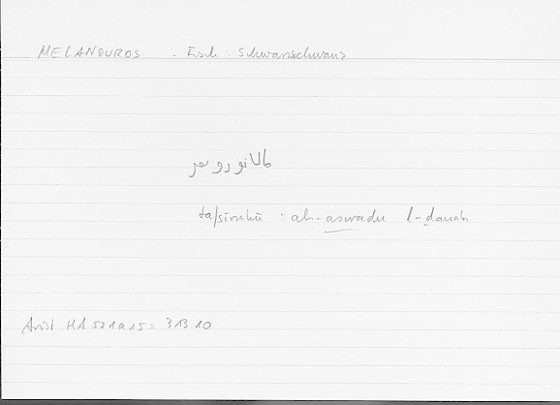 MELANOUROS - Fisch : Schwarzschwanz
مالانوروس
tafsīruhū : al-aswadu l-ḏanabi
Arist. HA 591a15 = 313.10